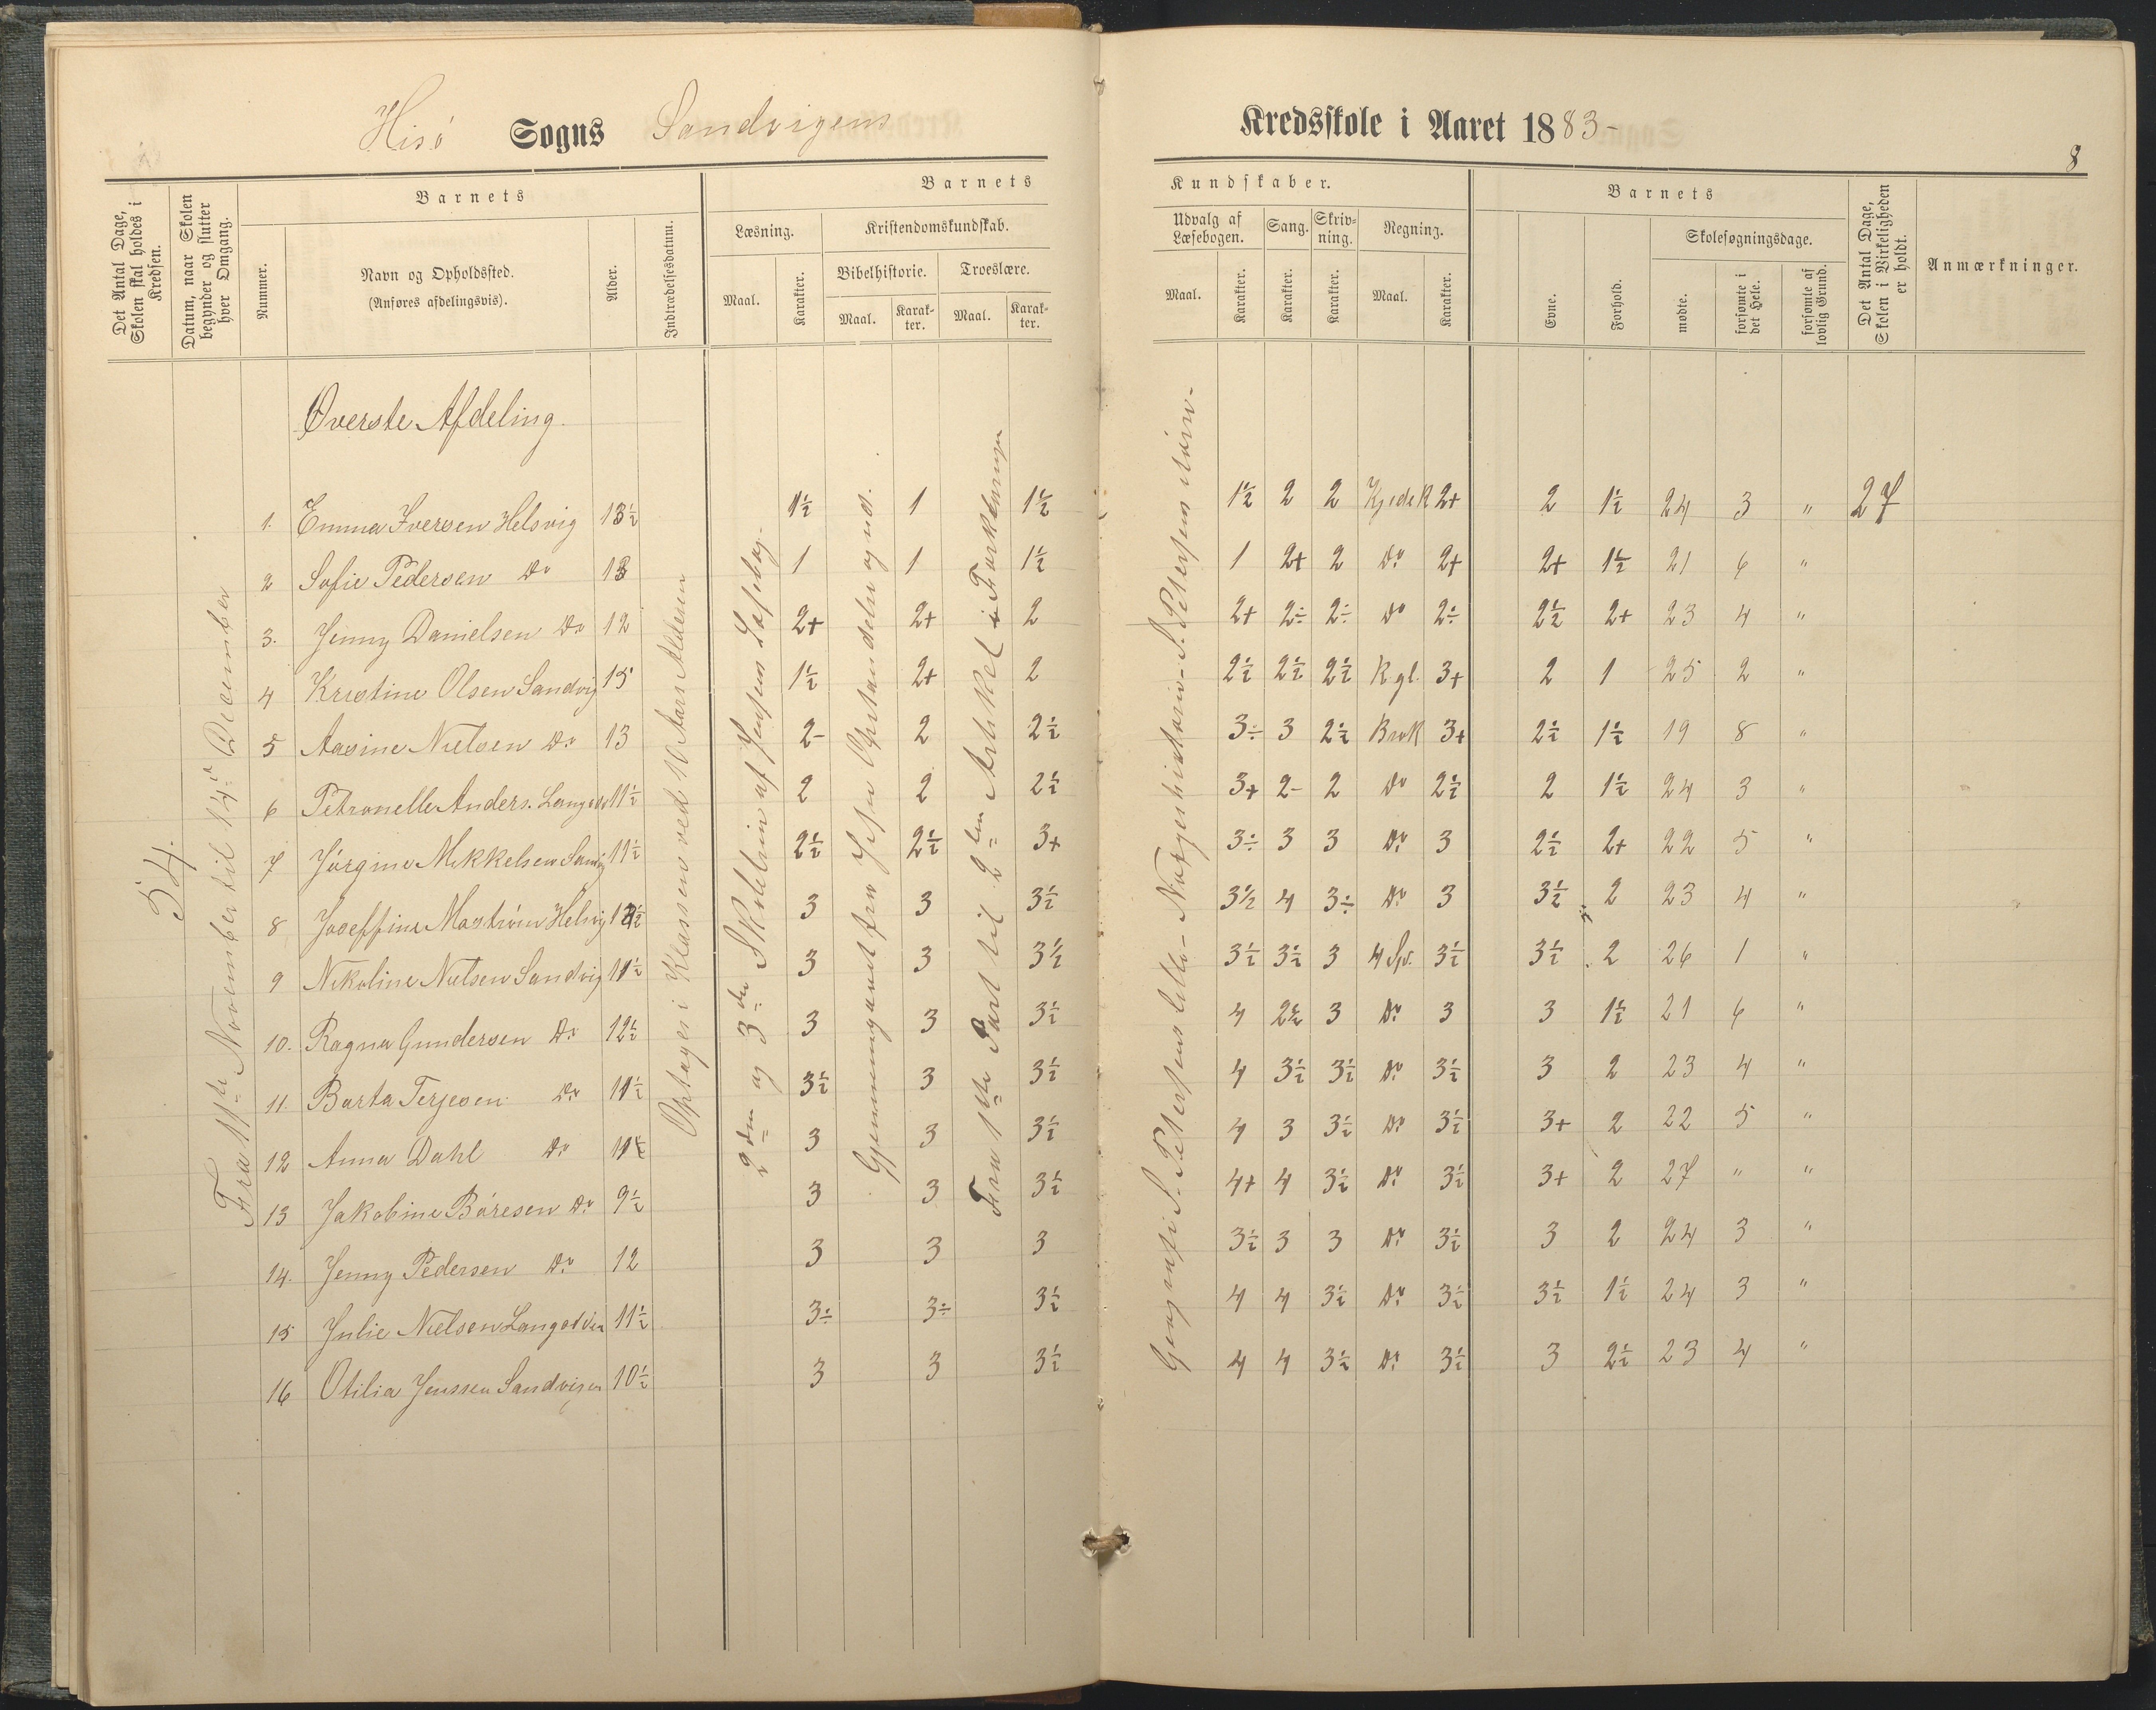 Hisö Sogns Sandvigens
Kredsskole i Aaret 1883-
8
Det Antal Dage, Skolen skal holdes i Kredsen.
Datum, naar Skolen begynder og slutter hver Omgang.
Barnets
Nummer.
Navn og Opholdssted.
(Anføres afdelingsvis).
Alder.
Indtrædelsesdatum.
Barnets
Læsning.
Maal.
Karakter.
Kristendomskundskab.
Bibelhistorie.
Maal.
Karakter.
Troeslære.
Maal.
Karakter.
Kundskaber.
Udvalg af Læsebogen.
Maal.
Karakter.
Sang.
Karakter.
Skrivning.
Karakter.
Regning.
Maal.
Karakter.
Barnets
Evne.
Forhold.
Skolesøgningsdage.
mødte.
forsømte i det Hele.
forsømte af lovlig Grund.
Det Antal Dage, Skolen i Virkeligheden er holdt.
Anmærkninger.
54.
Fra 11te November til 14de December
Øverste Afdeling.
Optages i Klassen ved 10 Aars Alderen
2den og 3die Skoletrin af Jensens Læsebog.
Gjennemgaaet fra Jesu Opstandelse og ud.
Fra 1ste Part til 2den Artikel i Forklaringen
Geografi S. Petersens lille- Norgeshistorie- S. Petersens större-
1. Emma Iversen Helsvig 13½ 1½ 1 1½ 1½ 2 2 Kjede R 2+ 2 1½ 24 3 " 27
2 Sofie Pedersen Do 13 1 1 1½ 1 2+ 2 Do 2+ 2+ 1½ 21 6 "
3. Jenny Danielsen Do 12 2+ 2+ 2 2+ 2÷ 2÷ Do 2÷ 2½ 2+ 23 4 "
4 Kristine Olsen Sandvig 15 1½ 2+ 2 2½ 2½ 2½ R.gl. 3+ 2 1 25 2 "
5 Aasine Nielsen Do 13 2- 2 2½ 3÷ 3 2½ Brøk 3+ 2½ 1½ 19 8 "
6 Petronelle Anders. Langedv 11½ 2 2 2½ 3+ 2- 2 Do 2½ 2 1½ 24 3 "
7 Jörgine Mikkelsen Sandvig 11½ 2½ 2½ 3+ 3÷ 3 3 Do 3 2½ 2+ 22 5 "
8 Joseffine Maström Helsvig 12½ 3 3 3½ 3½ 4 3÷ Do 3 3½ 2 23 4 "
9 Nikoline Nielsen Sandvig 11½ 3 3 3½ 3½ 3½ 3 4 Sp. 3½ 3½ 2 26 1 "
10. Ragna Gundersen Do 12½ 3 3 3½ 4 2½ 3 Do 3 3 1½ 21 6 "
11. Barta Terjesen Do 11½ 3½ 3 3½ 4 3½ 3½ Do 3½ 3 2 23 4 "
12 Anna Dahl Do 11½ 3 3 3½ 4 3 3½ Do 3½ 3+ 2 22 5 "
13 Jakobine Böresen Do 9½ 3 3 3½ 4+ 4 3½ Do 3½ 3+ 2 27 " "
14. Jenny Pedersen Do 12 3 3 3 3½ 3 3 Do 3½ 3 2 24 3 "
15 Julie Nielsen Langedvia 11½ 3÷ 3÷ 3½ 4 4 3½ Do 3½ 3½ 1½ 24 3 "
16 Otilia Jenssen Sandvigen 10½ 3 3 3½ 4 4 3½ Do 3½ 3 2½ 23 4 "